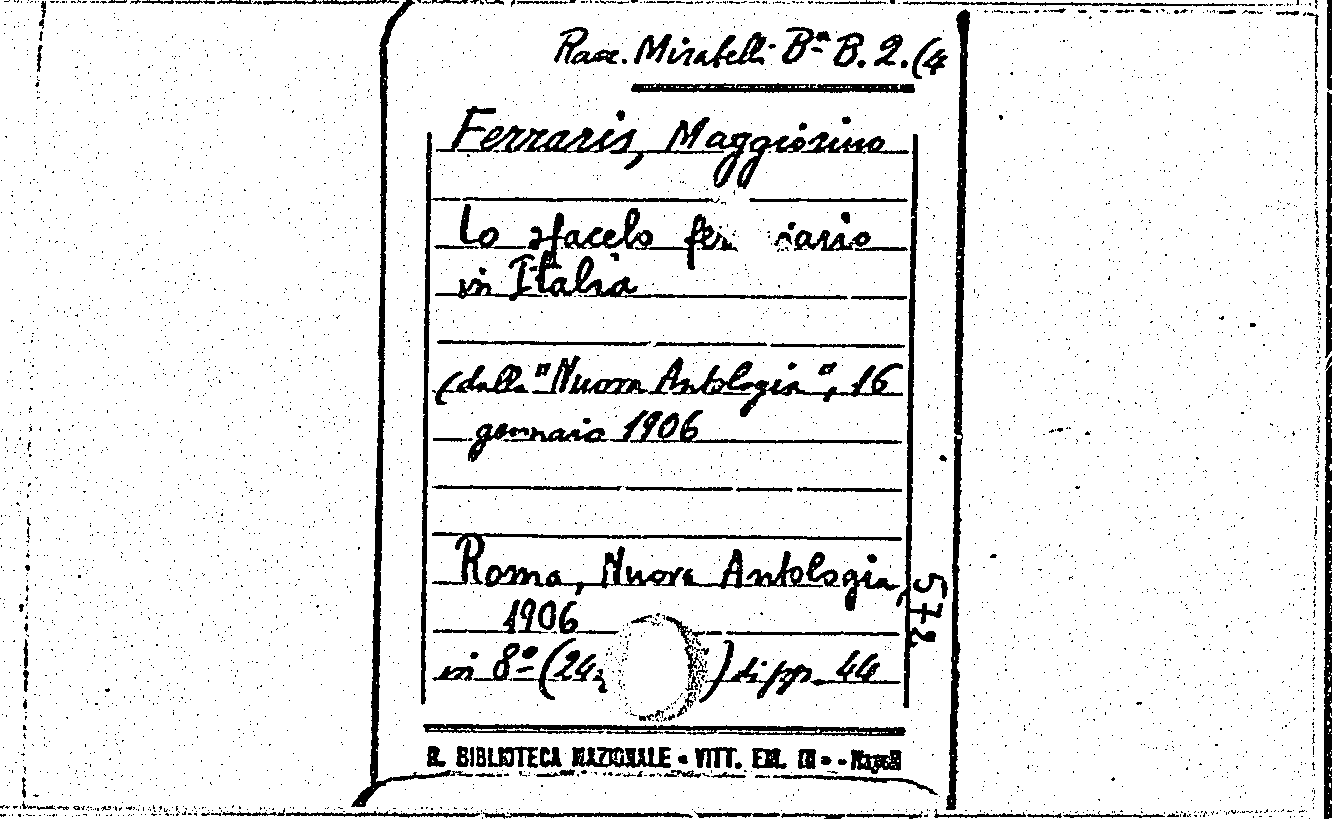 Racc. Mirabelli Bª B. 2. (4
Ferraris, Maggiorino
Lo sfacelo
in Italia
(dalla "Nuova Antologia", 16
gennaio 1906
Roma, Nuova Antologia,
1906
in 8º (24, ) di pp. 44
572
R. BIBLIOTECA NAZIONALE • VITT. EM. III • - Napoli